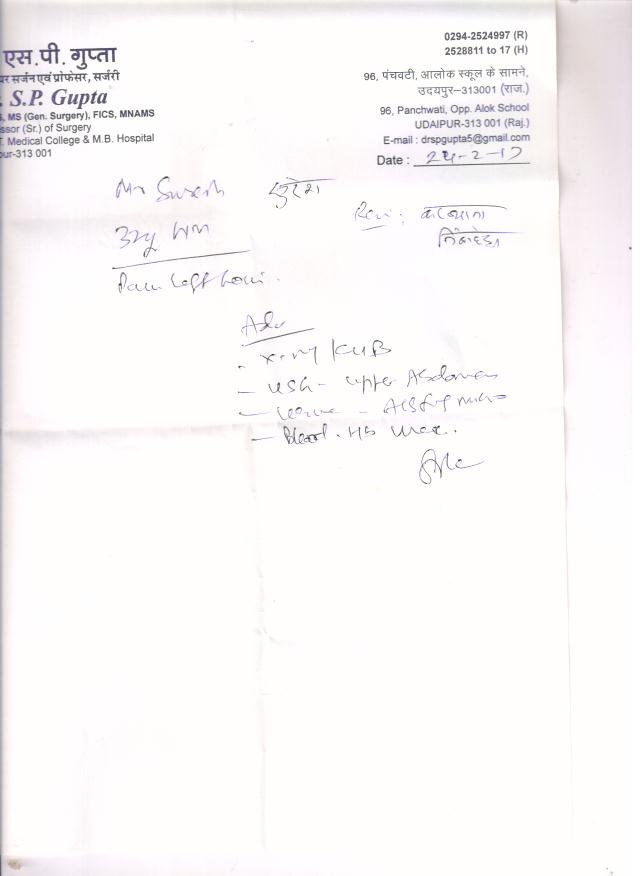 एस.पी. गुप्ता
सर्जन एवं प्रोफेसर, सर्जरी
S.P. Gupta
MS (Gen. Surgery), FICS, MNAMS
ssor (Sr.) of Surgery
Medical College & M.B. Hospital
pur-313 001
0294-2524997 (R)
2528811 to 17 (H)
96, पंचवटी, आलोक स्कूल के सामने,
उदयपुर–313001 (राज.)
96, Panchwati, Opp. Alok School
UDAIPUR-313 001 (Raj.)
E-mail : drspgupta5@gmail.com
Date : 24-2-17
Mr Suresh सुरेश
Pain left loin.
Adv
- X-ray KUB
- USG - Upper Abdomen
- Urine -
- Blood - Hb